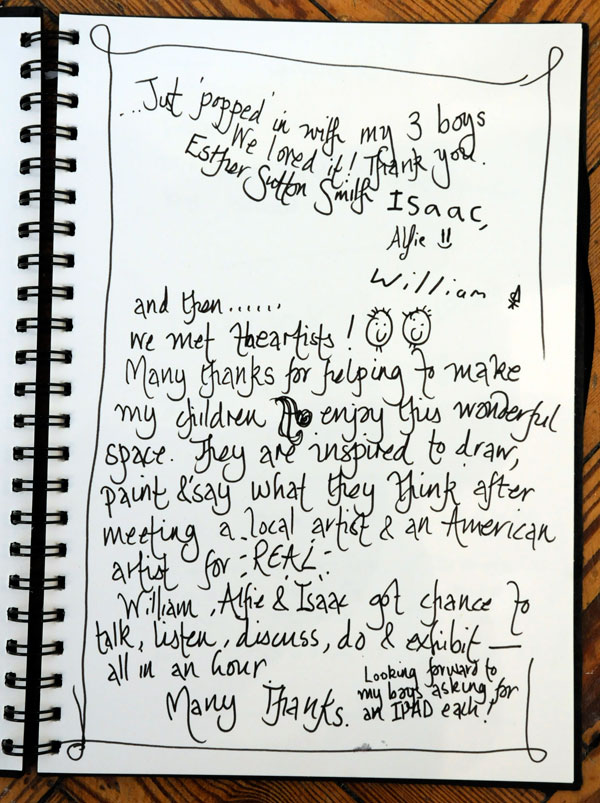 ...Just 'popped' in with my 3 boys
We loved it! Thank you.
Esther Sutton Smith
Isaac,
Alfie
William
and then......
we met the artists!
Many thanks for helping to make
my children to enjoy this wonderful
space. They are inspired to draw,
paint & say what they think after
meeting a local artist & an American
artist for -REAL-
William, Alfie & Isaac got chance to
talk, listen, discuss, do & exhibit —
all in an hour
Many Thanks.
Looking forward to
my boys asking for
an IPAD each!